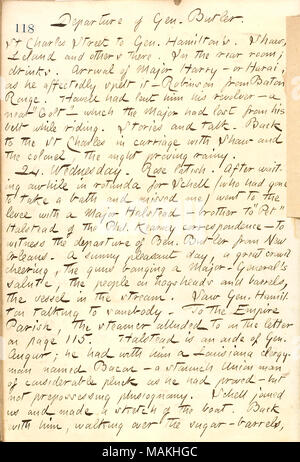 118
Departure of Gen. Butler.
St Charles Street to Gen. Hamilton's. Shaw,
Leland and others there. In the rear room;
drinks. Arrival of Major Harry - or Harai,
as he affectedly spelt it - Robinson from Baton
Rouge. Howell had lent him his revolver - a
new Colt - which the Major had lost from his
belt while riding. Stories and talk. Back
to the St Charles in carriage with Shaw and
the colonel, the night proving rainy.
24. Wednesday. Rose latish. After wait-
ing awhile in rotunda for Schell (who had gone
to take a bath and missed me) went to the
levee with a Major Halstead - brother to "Pet"
Halstead of the Phil. Kearney correspondence - to
witness the departure of Ben. Butler from New
Orleans. A sunny pleasant day, a great crowd
cheering, the guns banging a Major-General's
salute, the people on hogsheads and barrels,
the vessel in the stream. Saw Gen. Hamil-
ton talking to somebody. To the Empire
Parish, the steamer alluded to in the letter
on page 115. Halstead is an aide of Gen.
Augur; he had with him a Louisiana clergy-
man named Bacon - a staunch Union man
of considerable pluck as he had proved - but
not prepossessing physiognamy. Schell joined
us and made a sketch of the boat. Back
with him, walking over the sugar-barrels,
alamy
MAKHGC
www.alamy.com